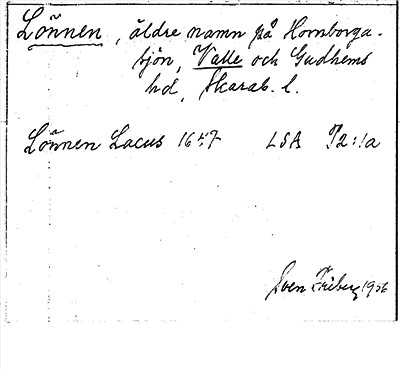 Lönnen, äldre namn på Hornborga-
sjön, Valle och Gudhems
hd, Skarab. l.
Lönnen Lacus 1647 LSA P2:1a
Sven Friberg 1926